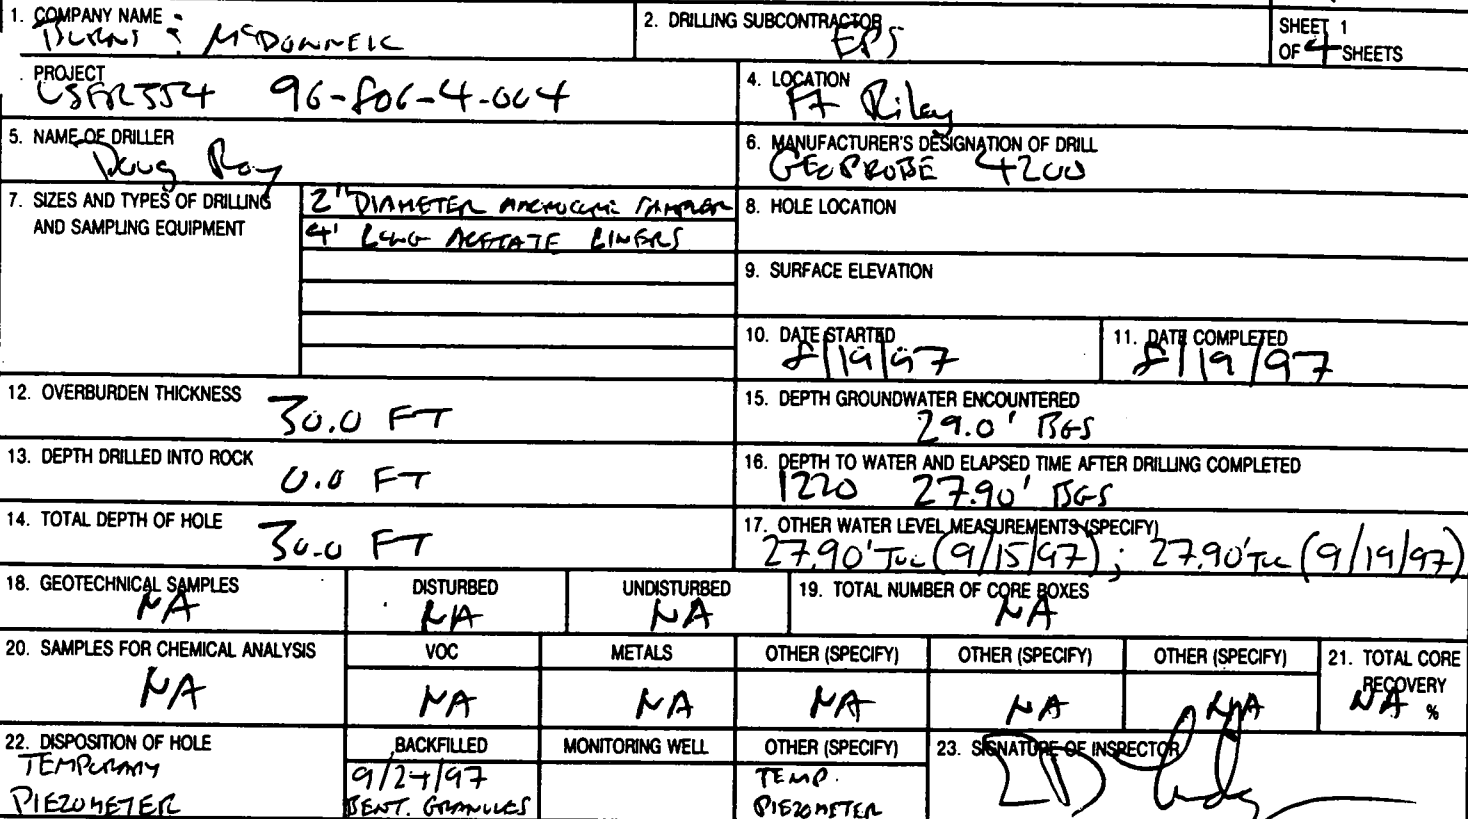 1. COMPANY NAME
BURNS & McDONNELL
2. DRILLING SUBCONTRACTOR
EPS
SHEET 1
OF 4 SHEETS
PROJECT
96-806-4-004
4. LOCATION
Ft Riley
5. NAME OF DRILLER
Doug Roy
6. MANUFACTURER'S DESIGNATION OF DRILL
GEOPROBE 4200
7. SIZES AND TYPES OF DRILLING
AND SAMPLING EQUIPMENT
2" DIAMETER MACROCORE SAMPLER
4' LONG ACETATE LINERS
8. HOLE LOCATION
9. SURFACE ELEVATION
10. DATE STARTED
8/19/97
11. DATE COMPLETED
8/19/97
12. OVERBURDEN THICKNESS
30.0 FT
15. DEPTH GROUNDWATER ENCOUNTERED
29.0' BGS
13. DEPTH DRILLED INTO ROCK
0.0 FT
16. DEPTH TO WATER AND ELAPSED TIME AFTER DRILLING COMPLETED
1220 27.90' BGS
14. TOTAL DEPTH OF HOLE
30.0 FT
17. OTHER WATER LEVEL MEASUREMENTS (SPECIFY)
27.90' TOC (9/15/97); 27.90' TOC (9/19/97)
18. GEOTECHNICAL SAMPLES
NA
DISTURBED
NA
UNDISTURBED
NA
19. TOTAL NUMBER OF CORE BOXES
NA
20. SAMPLES FOR CHEMICAL ANALYSIS
NA
VOC
NA
METALS
NA
OTHER (SPECIFY)
NA
OTHER (SPECIFY)
NA
OTHER (SPECIFY)
NA
21. TOTAL CORE
RECOVERY
NA %
22. DISPOSITION OF HOLE
TEMPORARY
PIEZOMETER
BACKFILLED
9/24/97
BENT. GRANULES
MONITORING WELL
OTHER (SPECIFY)
TEMP.
PIEZOMETER
23. SIGNATURE OF INSPECTOR